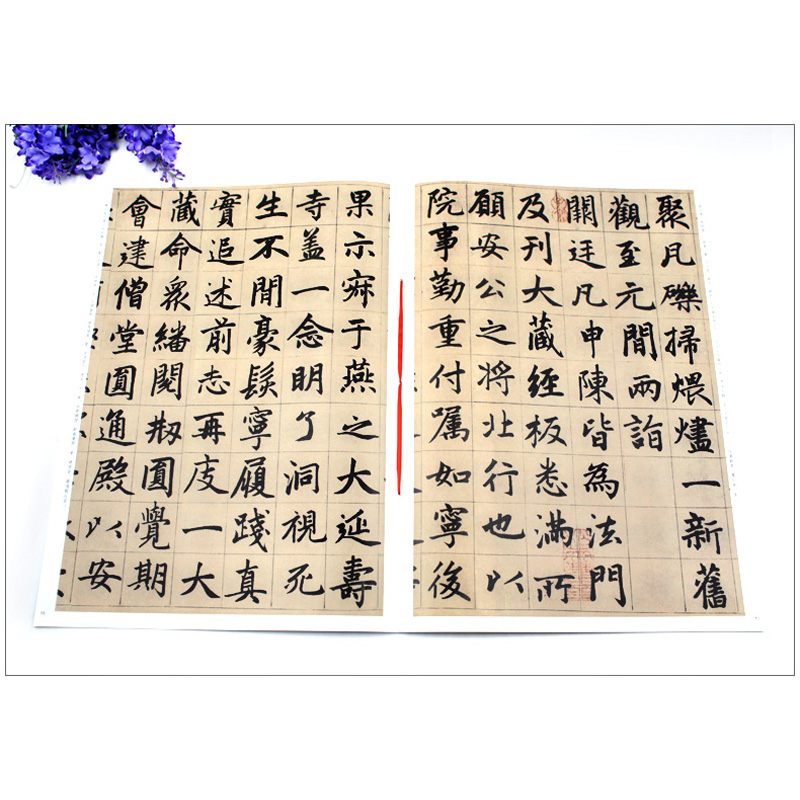 聚瓦礫掃煨燼一新舊
觀至元間兩詣
闕廷凡申陳皆為法門
及刊大藏經板悉滿所
願安公之將北行也以
院事勤重付嘱如寧後
果示寂于燕之大延壽
寺盖一念明了洞視死
生不間豪髮寧履踐真
實追述前志再庋一大
藏命眾繙閱刱圓覺期
會建僧堂圓通殿以安